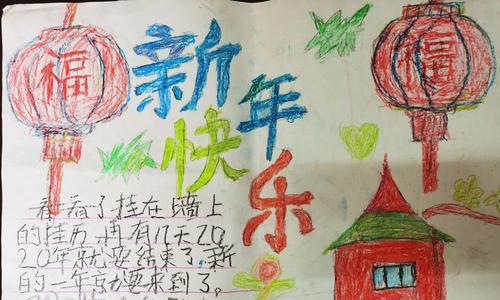 福
新年
快乐
福
看一看了挂在墙上
的挂历,再有几天20
20年就要结束了,新
的一年马上要来到了。